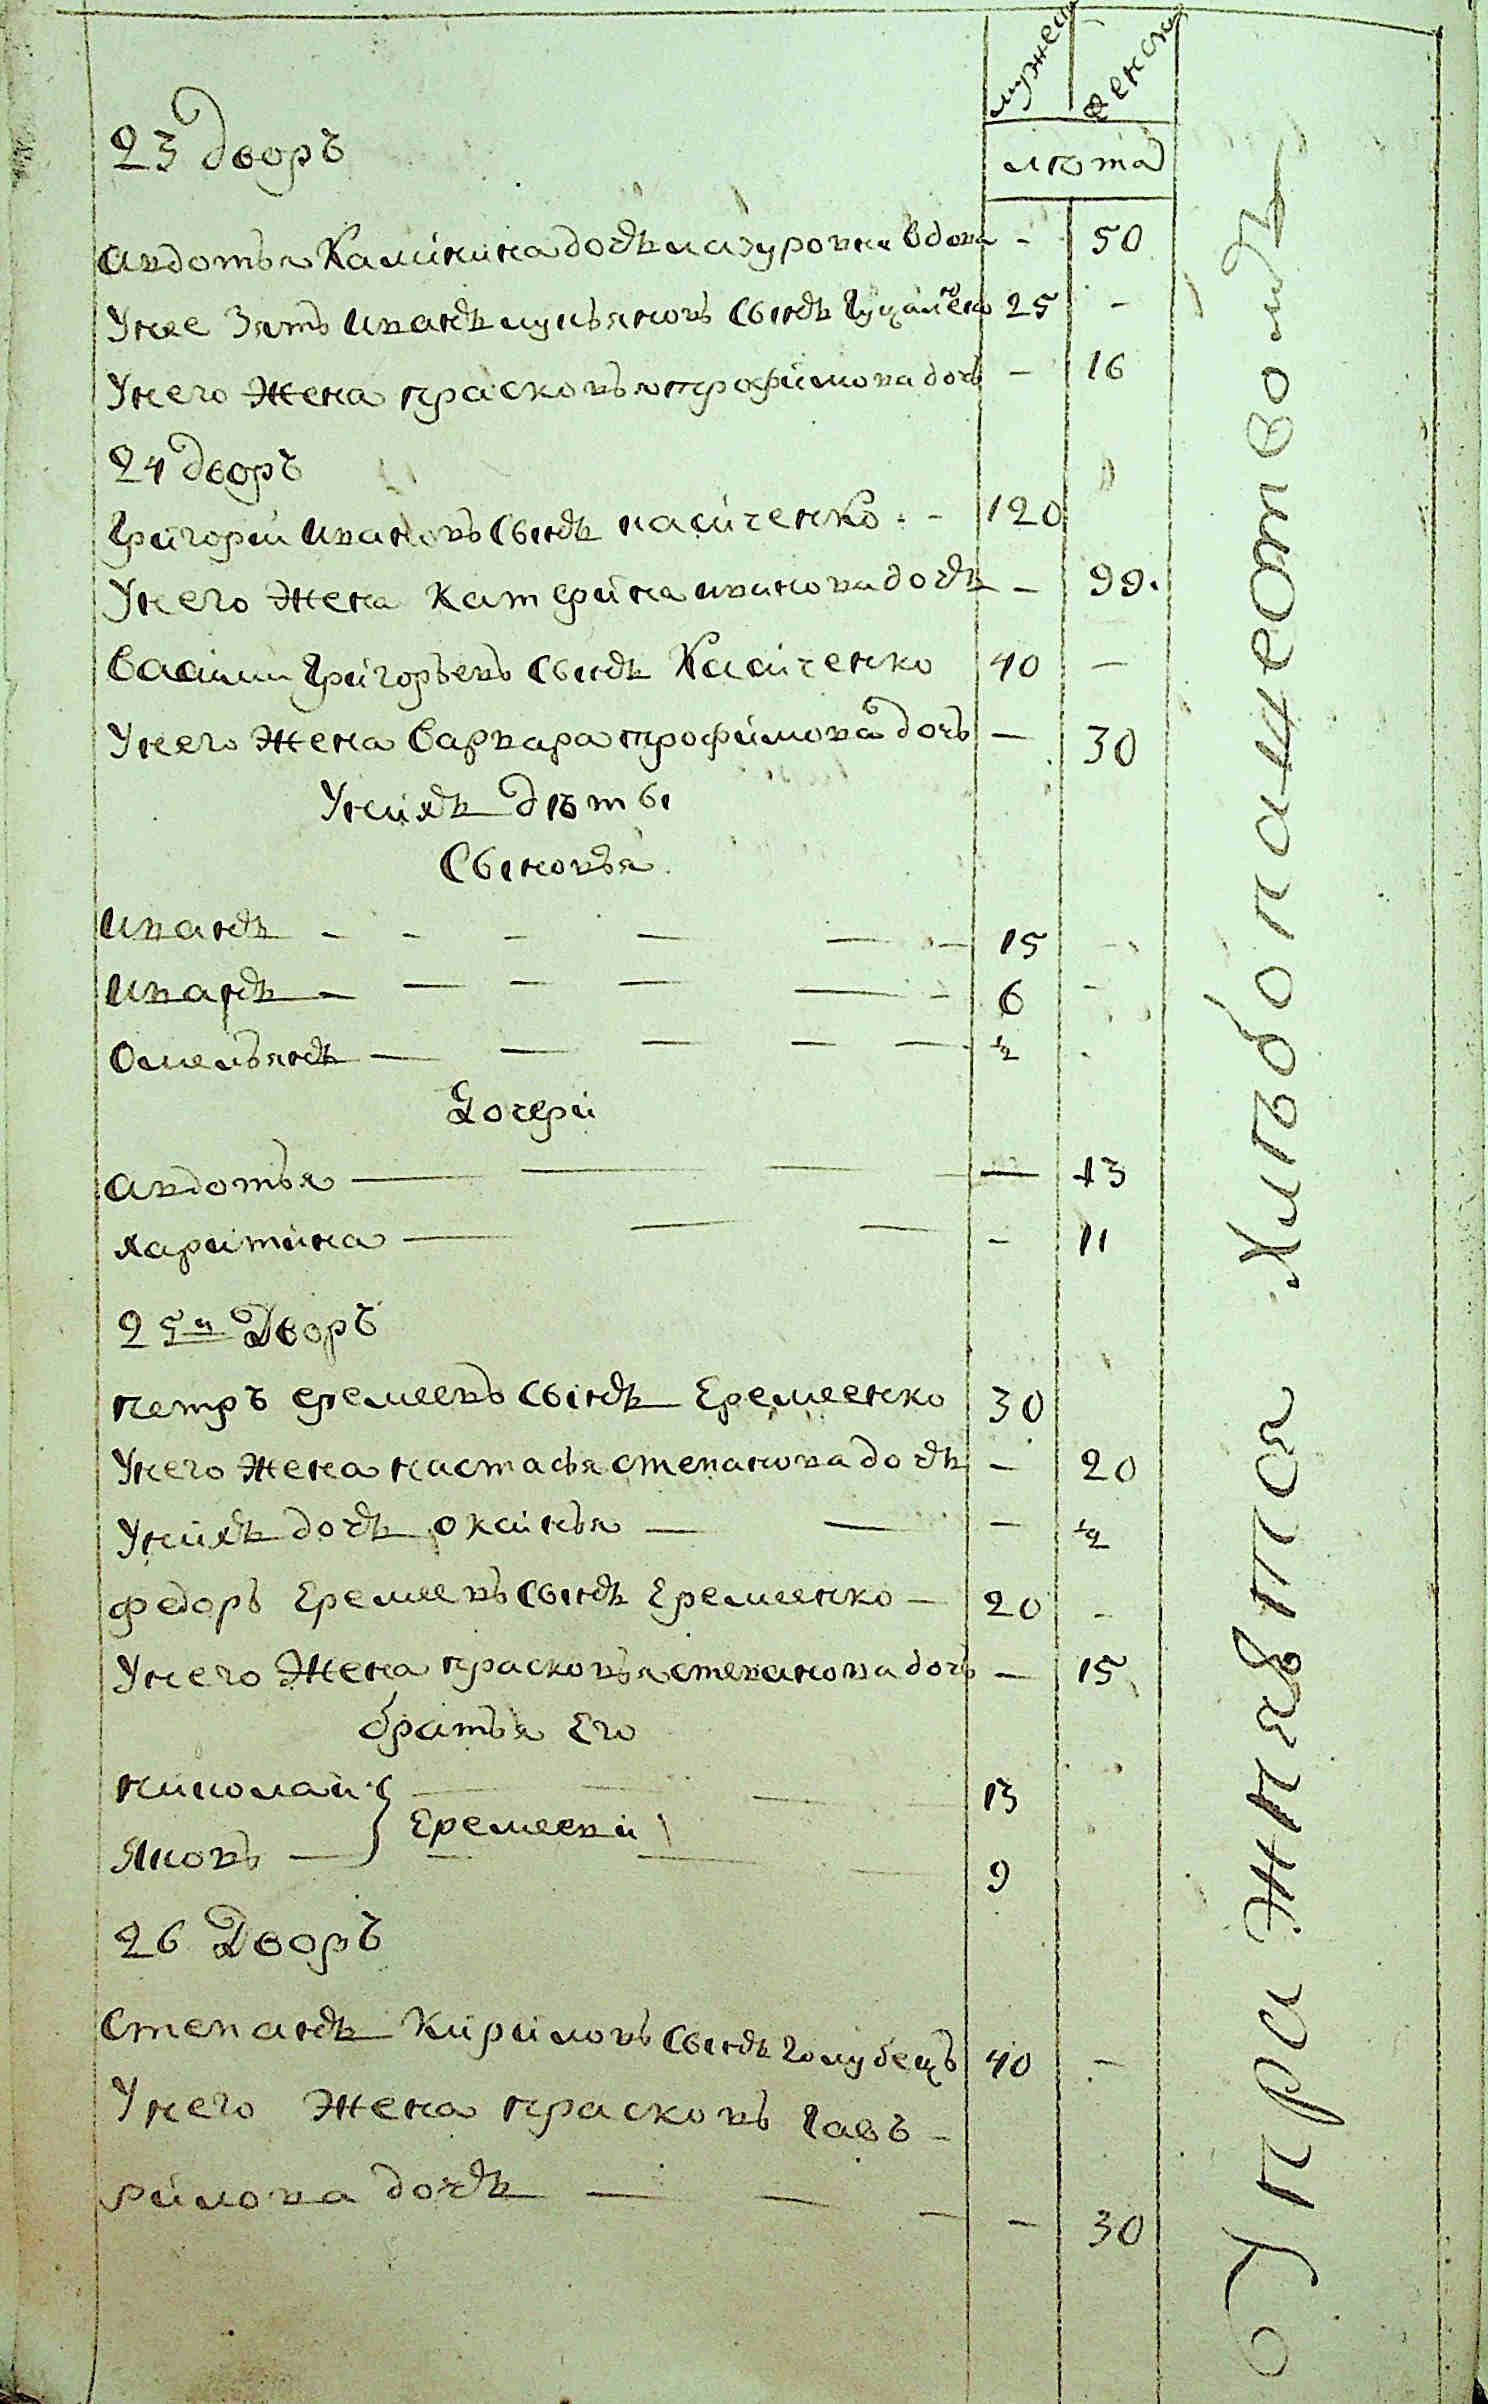 мужеска женска
лѣта
23 дворъ
Авдотья Калинина дочь мазуровна вдова - 50
У нее зять Иванъ лукьяновъ сынъ 25 -
У него жена прасковья трофимова дочь - 16
24 дворъ
Григорей Ивановъ сынъ касиченко - 120
У него жена катерина иванова дочь - 99.
Василии Григорьевъ сынъ Касиченко 40 -
У него жена варвара трофимова дочь - 30
У нихъ дѣты
Сыновья
Иванъ - - - - - - 15 -
Иванъ - - - - - - 6 -
Омельянъ - - - - - 1/2
Дочери
Авдотья - - - - 13
Харитина - - - - 11
25й Дворъ
петръ еремеевъ сынъ Еремеенко 30
У него жена настасья степанова дочь - 20
У нихъ дочь оксинья - - - 1/2
федоръ Еремеевъ сынъ Еремеенко - 20 -
У него жена прасковья степанова дочь - 15
братья Его
николай } Еремееви 13
Яковъ - 9
26 Дворъ
Степанъ Кириловъ сынъ Голубецъ 40 -
У него жена прасковь Гавъ-
рилова дочь - - - - 30
Упражняются Хлѣбопашествомъ